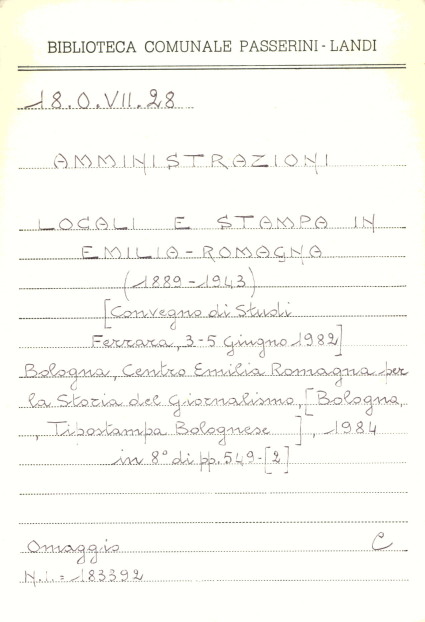 BIBLIOTECA COMUNALE PASSERINI-LANDI
18.O.VII.28
AMMINISTRAZIONI
LOCALI E STAMPA IN
EMILIA-ROMAGNA
(1889-1943)
[Convegno di Studi
Ferrara, 3-5 Giugno 1982]
Bologna, Centro Emilia Romagna per
la Storia del Giornalismo, [Bologna,
, Tipostampa Bolognese ], 1984
in 8° di pp. 549-[2]
Omaggio C
N.i. = 183392